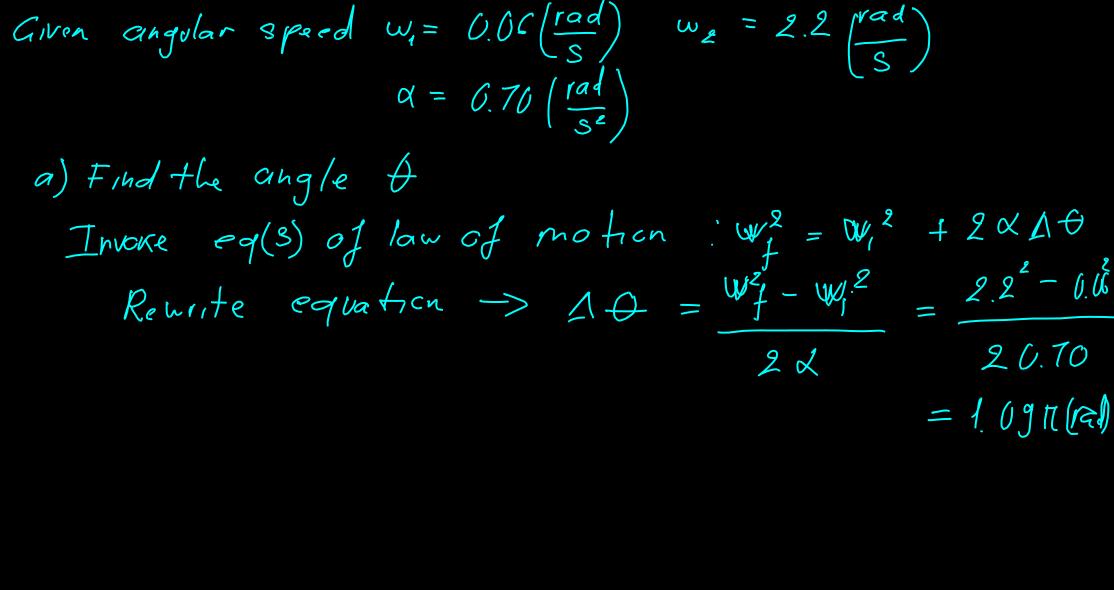 Given angular speed ω₁ = 0.06 (rad/s) ω₂ = 2.2 (rad/s)
α = 0.70 (rad/s²)
a) Find the angle θ
Invoke eq(3) of law of motion : ω_f² = ω_i² + 2αΔθ
Rewrite equation → Δθ = (ω_f² - ω_i²)/(2α) = (2.2² - 0.06²)/(2 0.70)
= 1.09π (rad)